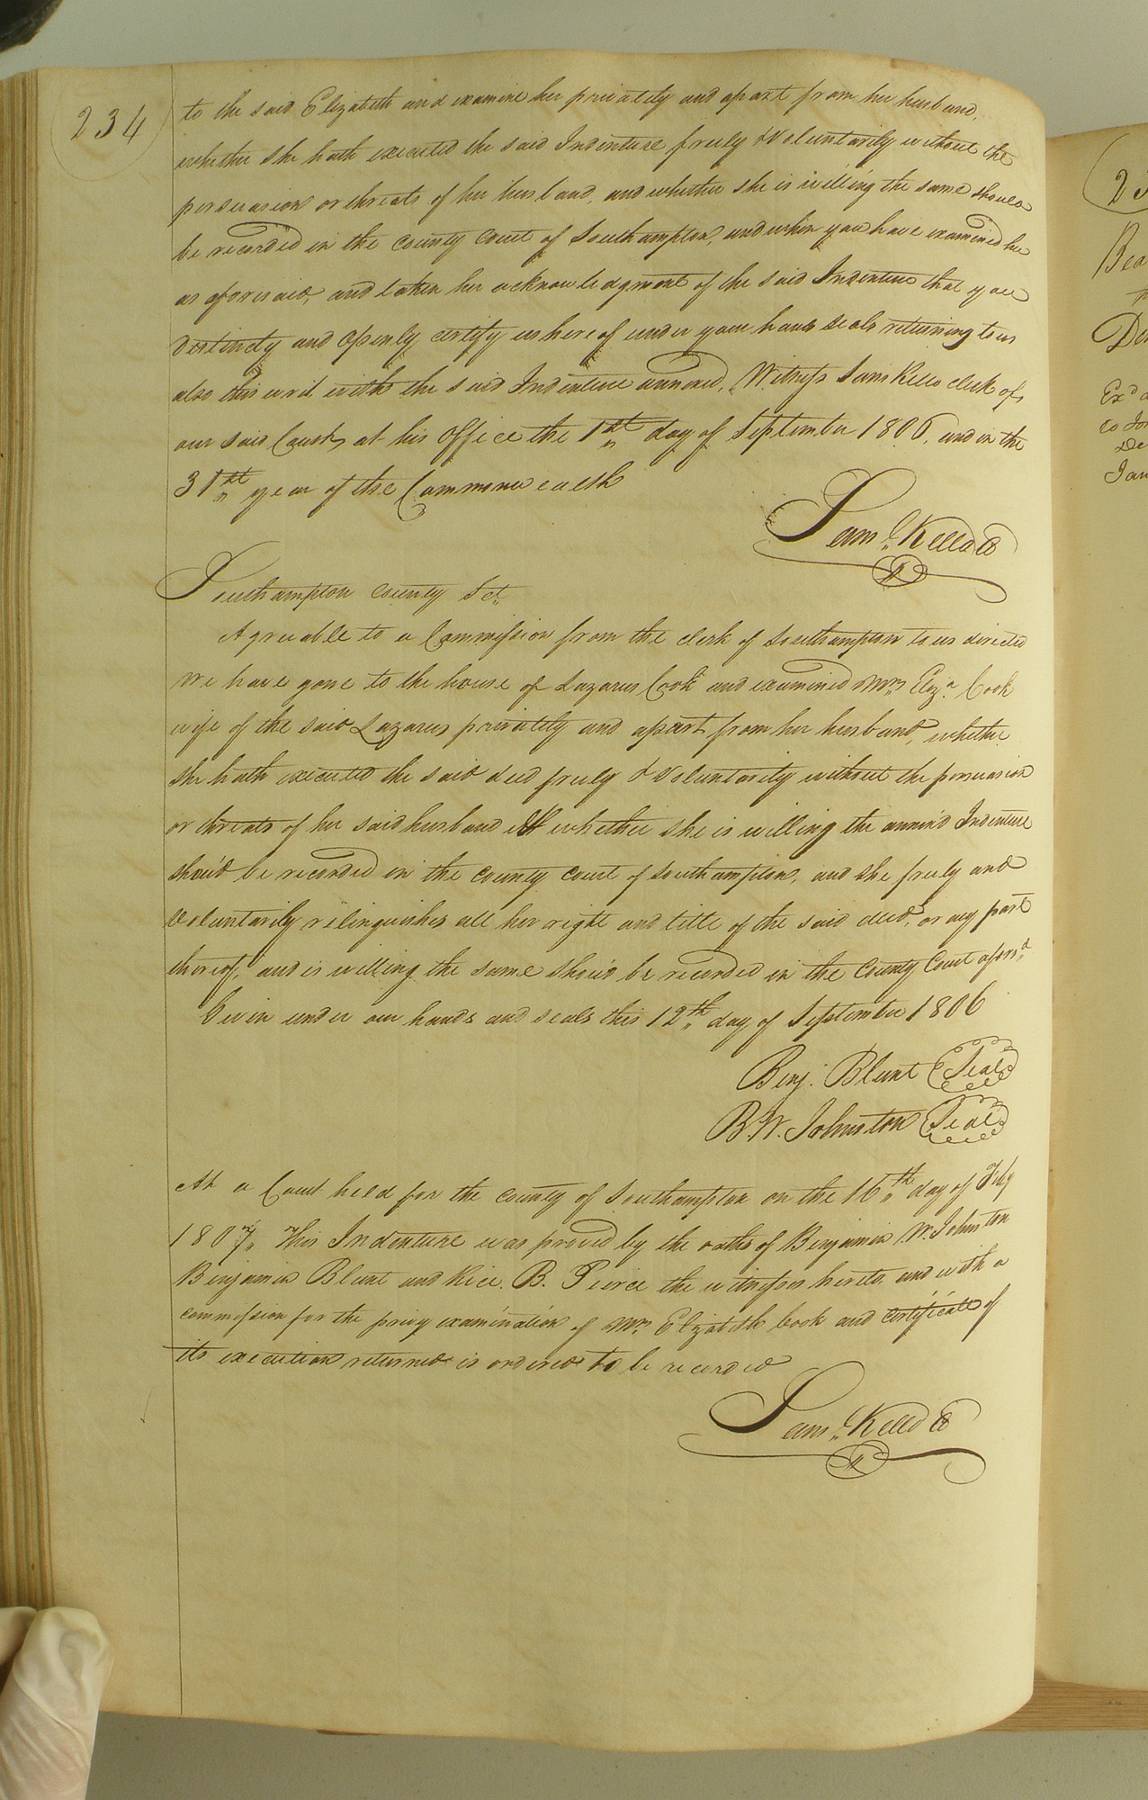 234
to the said Elizabeth and examine her privately and apart from her husband,
whether she hath executed the said Indenture freely & Voluntarily without the
persuasion or threats of her husband, and whether she is willing the same should
be recorded in the county court of Southampton, and when you have examined her
as aforesaid and taken her acknowledgment of the said Indenture that you
distinctly and openly certify us thereof under your hands seals returning to us
also this writ with the said Indenture annexed. Witness Sam Kello clerk of
our said Court, at his office the 1st day of September 1806. and in the
31st year of the Commonwealth
Sam. Kello Co
Southampton County Sct.
Agreeable to a Commission from the clerk of Southampton to us directed
we have gone to the house of Lazarus Cook and examined Mrs. Eliza. Cook
wife of the said Lazarus privately and apart from her husband, whether
she hath executed the said deed freely & Voluntarily without the persuasion
or threats of her said husband & whether she is willing the annex'd Indenture
shou'd be recorded in the county court of Southampton, and she freely and
Voluntarily relinquishes all her right and title of the said deed, or any part
thereof, and is willing the same shou'd be recorded in the County Court afors.d
Given under our hands and seals this 12th day of September 1806
Benj. Blunt Seal
B. W. Johnston Seal
At a Court held for the county of Southampton on the 16.th day of Feby
1807. This Indenture was proved by the oaths of Benjamin W. Johnston
Benjamin Blunt and Rice. B. Pierce the witnesses hereto, and with a
commission for the privy examination of Mrs. Elizabeth Cook and certificate of
its execution returned is ordered to be recorded
Sam. Kello Co
Bea
De
Ex'd
to
De
Jan